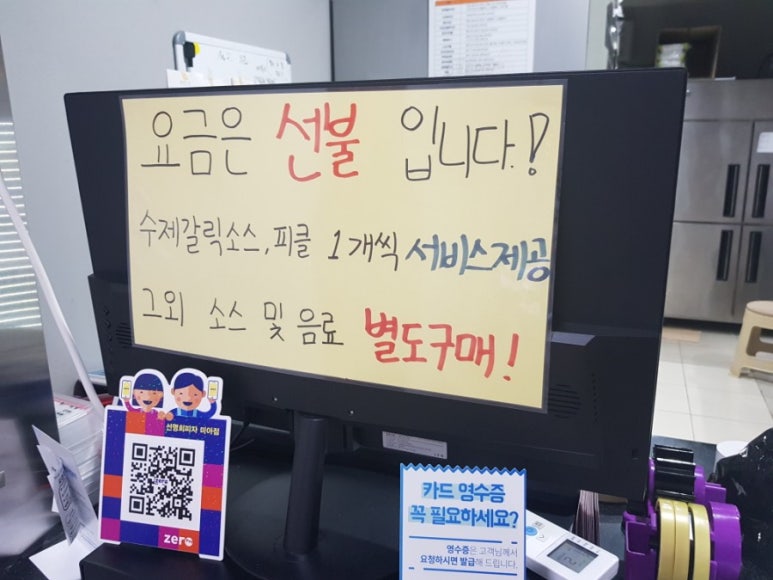 요금은 선불 입니다.!
수제갈릭소스, 피클 1개씩 서비스제공
그외 소스 및 음료 별도구매!
선명희피자 미아점
zero
카드 영수증
꼭 필요하세요?
영수증은 고객님께서
요청하시면 발급해 드립니다.